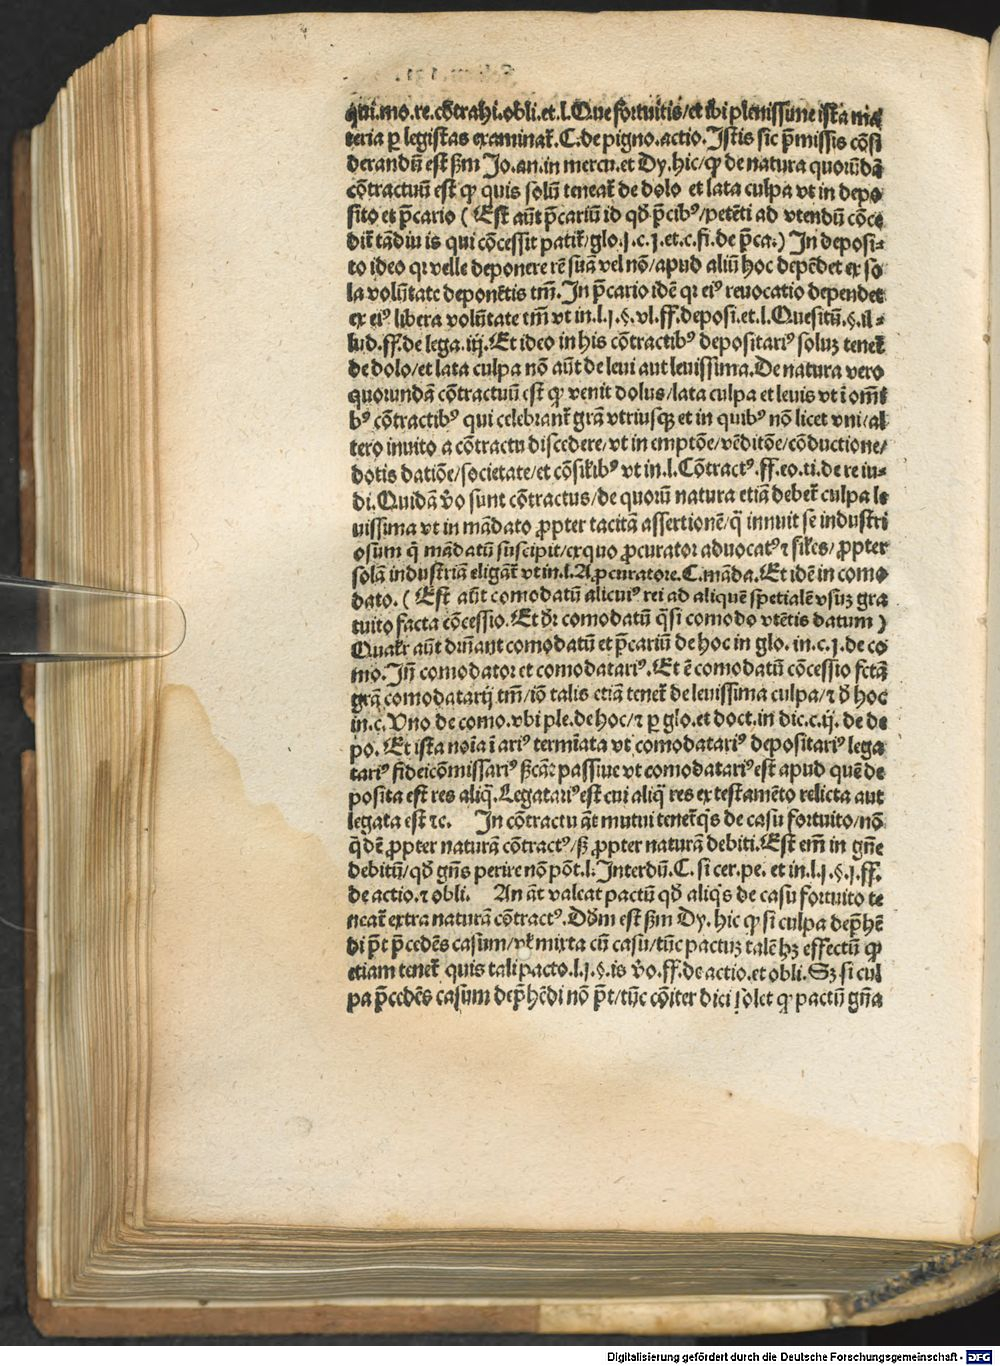 qui.mo.re.cõtrahi.obli.et.l.Que fortuitis/et ibi plenissime ista ma
teria ꝑ legistas examinat̃.C.de pigno.actio.Istis sic p̃missis cõsi
derandũ est ẜm Jo.an.in mercu.et Dy.hic/ꝙ de natura quorũdã
cõtractuũ est ꝙ quis solũ teneat̃ de dolo et lata culpa vt in depo
sito et p̃cario ( Est aũt p̃cariũ id qð p̃cibꝰ/petẽti ad vtendũ cõce
dit̃ tãdiu is qui cõcessit patit̃/glo.j.c.j.et.c.fi.de p̃ca.) In deposi⸗
to ideo qꝛ velle deponere rẽ suã vel nõ/apud aliũ hoc depẽdet ex so
la volũtate deponẽtis tm̃.In p̃cario idẽ qꝛ eiꝰ reuocatio dependet
ex eiꝰ libera volũtate tm̃ vt in.l.j.§.vl.ff.deposi.et.l.Quesitũ.§.il⸗
lud.ff.de lega.iij.Et ideo in his cõtractibꝰ depositariꝰ soluꝫ tenet̃
de dolo/et lata culpa nõ aũt de leui aut leuissima.De natura vero
quorundã cõtractuũ est ꝙ venit dolus/lata culpa et leuis vt ĩ om̃i
bꝰ cõtractibꝰ qui celebrant̃ gr̃a vtriusqꝫ et in quibꝰ nõ licet vni/al
tero inuito a cõtractu discedere/vt in emptõe/vẽditõe/cõductione/
dotis datiõe/societate/et cõsil̃ibꝰ vt in.l.Cõtractꝰ.ff.eo.ti.de re iu⸗
di.Quidã ṽo sunt cõtractus/de quorũ natura etiã debet̃ culpa le
uissima vt in mãdato ꝓpter tacitã assertionẽ/q̃ innuit se industri
osum q̃ mãdatũ suscipit/exquo ꝓcurator aduocatꝰ ⁊ sil̃es/ꝓpter
solã industriã eligãt̃ vt in.l.A ꝓcuratore.C.mãda.Et idẽ in como
dato.( Est aũt comodatũ alicuiꝰ rei ad aliquẽ spetialẽ vsuꝫ gra
tuito facta cõcessio.Et dr̃ comodatũ q̃si comodo vtẽtis datum )
Qual̃r aũt dr̃nant comodatũ et p̃cariũ de hoc in glo. in.c.j.de co
mo.Iñ comodator et comodatariꝰ.Et ẽ comodatũ cõcessio fctã
gr̃a comodatarij tm̃/iõ talis etiã tenet̃ de leuissima culpa/⁊ ð hoc
in.c.Uno de como.vbi ple.de hoc/⁊ ꝑ glo.et doct.in dic.c.ij. de de
po. Et ista noĩa ĩ ariꝰ termĩata vt comodatariꝰ depositariꝰ lega
tariꝰ fideicõmissariꝰ
posita est res aliq̃.Legatariꝰ est cui aliq̃ res ex testamẽto relicta aut
legata est ⁊c. In cõtractu aũt mutui tenet̃ q̃s de casu fortuito/nõ
q̃dẽ ꝓpter naturã cõtractꝰ/ẜ ꝓpter naturã debiti.Est em̃ in gñe
debitũ/qð gñs perire nõ põt.l.Interdũ.C. si cer.pe. et in.l.j.§.j.ff.
de actio.⁊ obli. An ãt valeat pactũ qð aliq̃s de casu fortuito te
neat̃ extra naturã cõtractꝰ.Dðm est ẜm Dy.hic ꝙ si culpa dep̃hẽ
di p̃t p̃cedẽs casum/vl̃ mixta cũ casu/tũc pactuꝫ talẽ hꝫ effectũ ꝙ
etiam tenet̃ quis tali pacto.l.j.§.is ṽo.ff.de actio.et obli.Sꝫ si cul
pa p̃cedẽs casum dep̃hẽdi nõ p̃t/tũc cõiter dici solet ꝙ pactũ gña
Digitalisierung gefördert durch die Deutsche Forschungsgemeinschaft - DFG